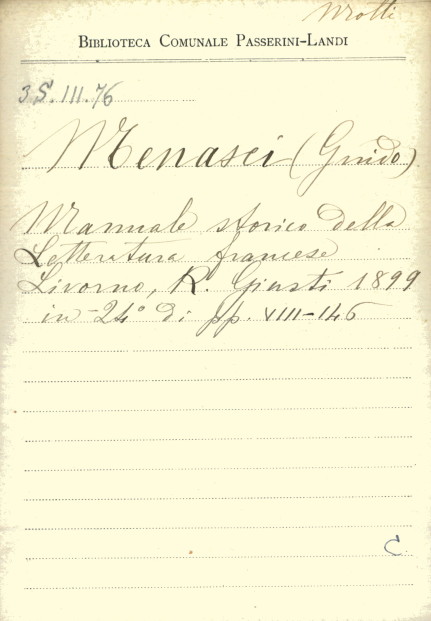 Motti
BIBLIOTECA COMUNALE PASSERINI-LANDI
3S.III.76
Menasci (Guido)
Manuale storico della
Letteratura francese
Livorno, R. Giusti 1899
in-24° di pp. VIII-146
C.